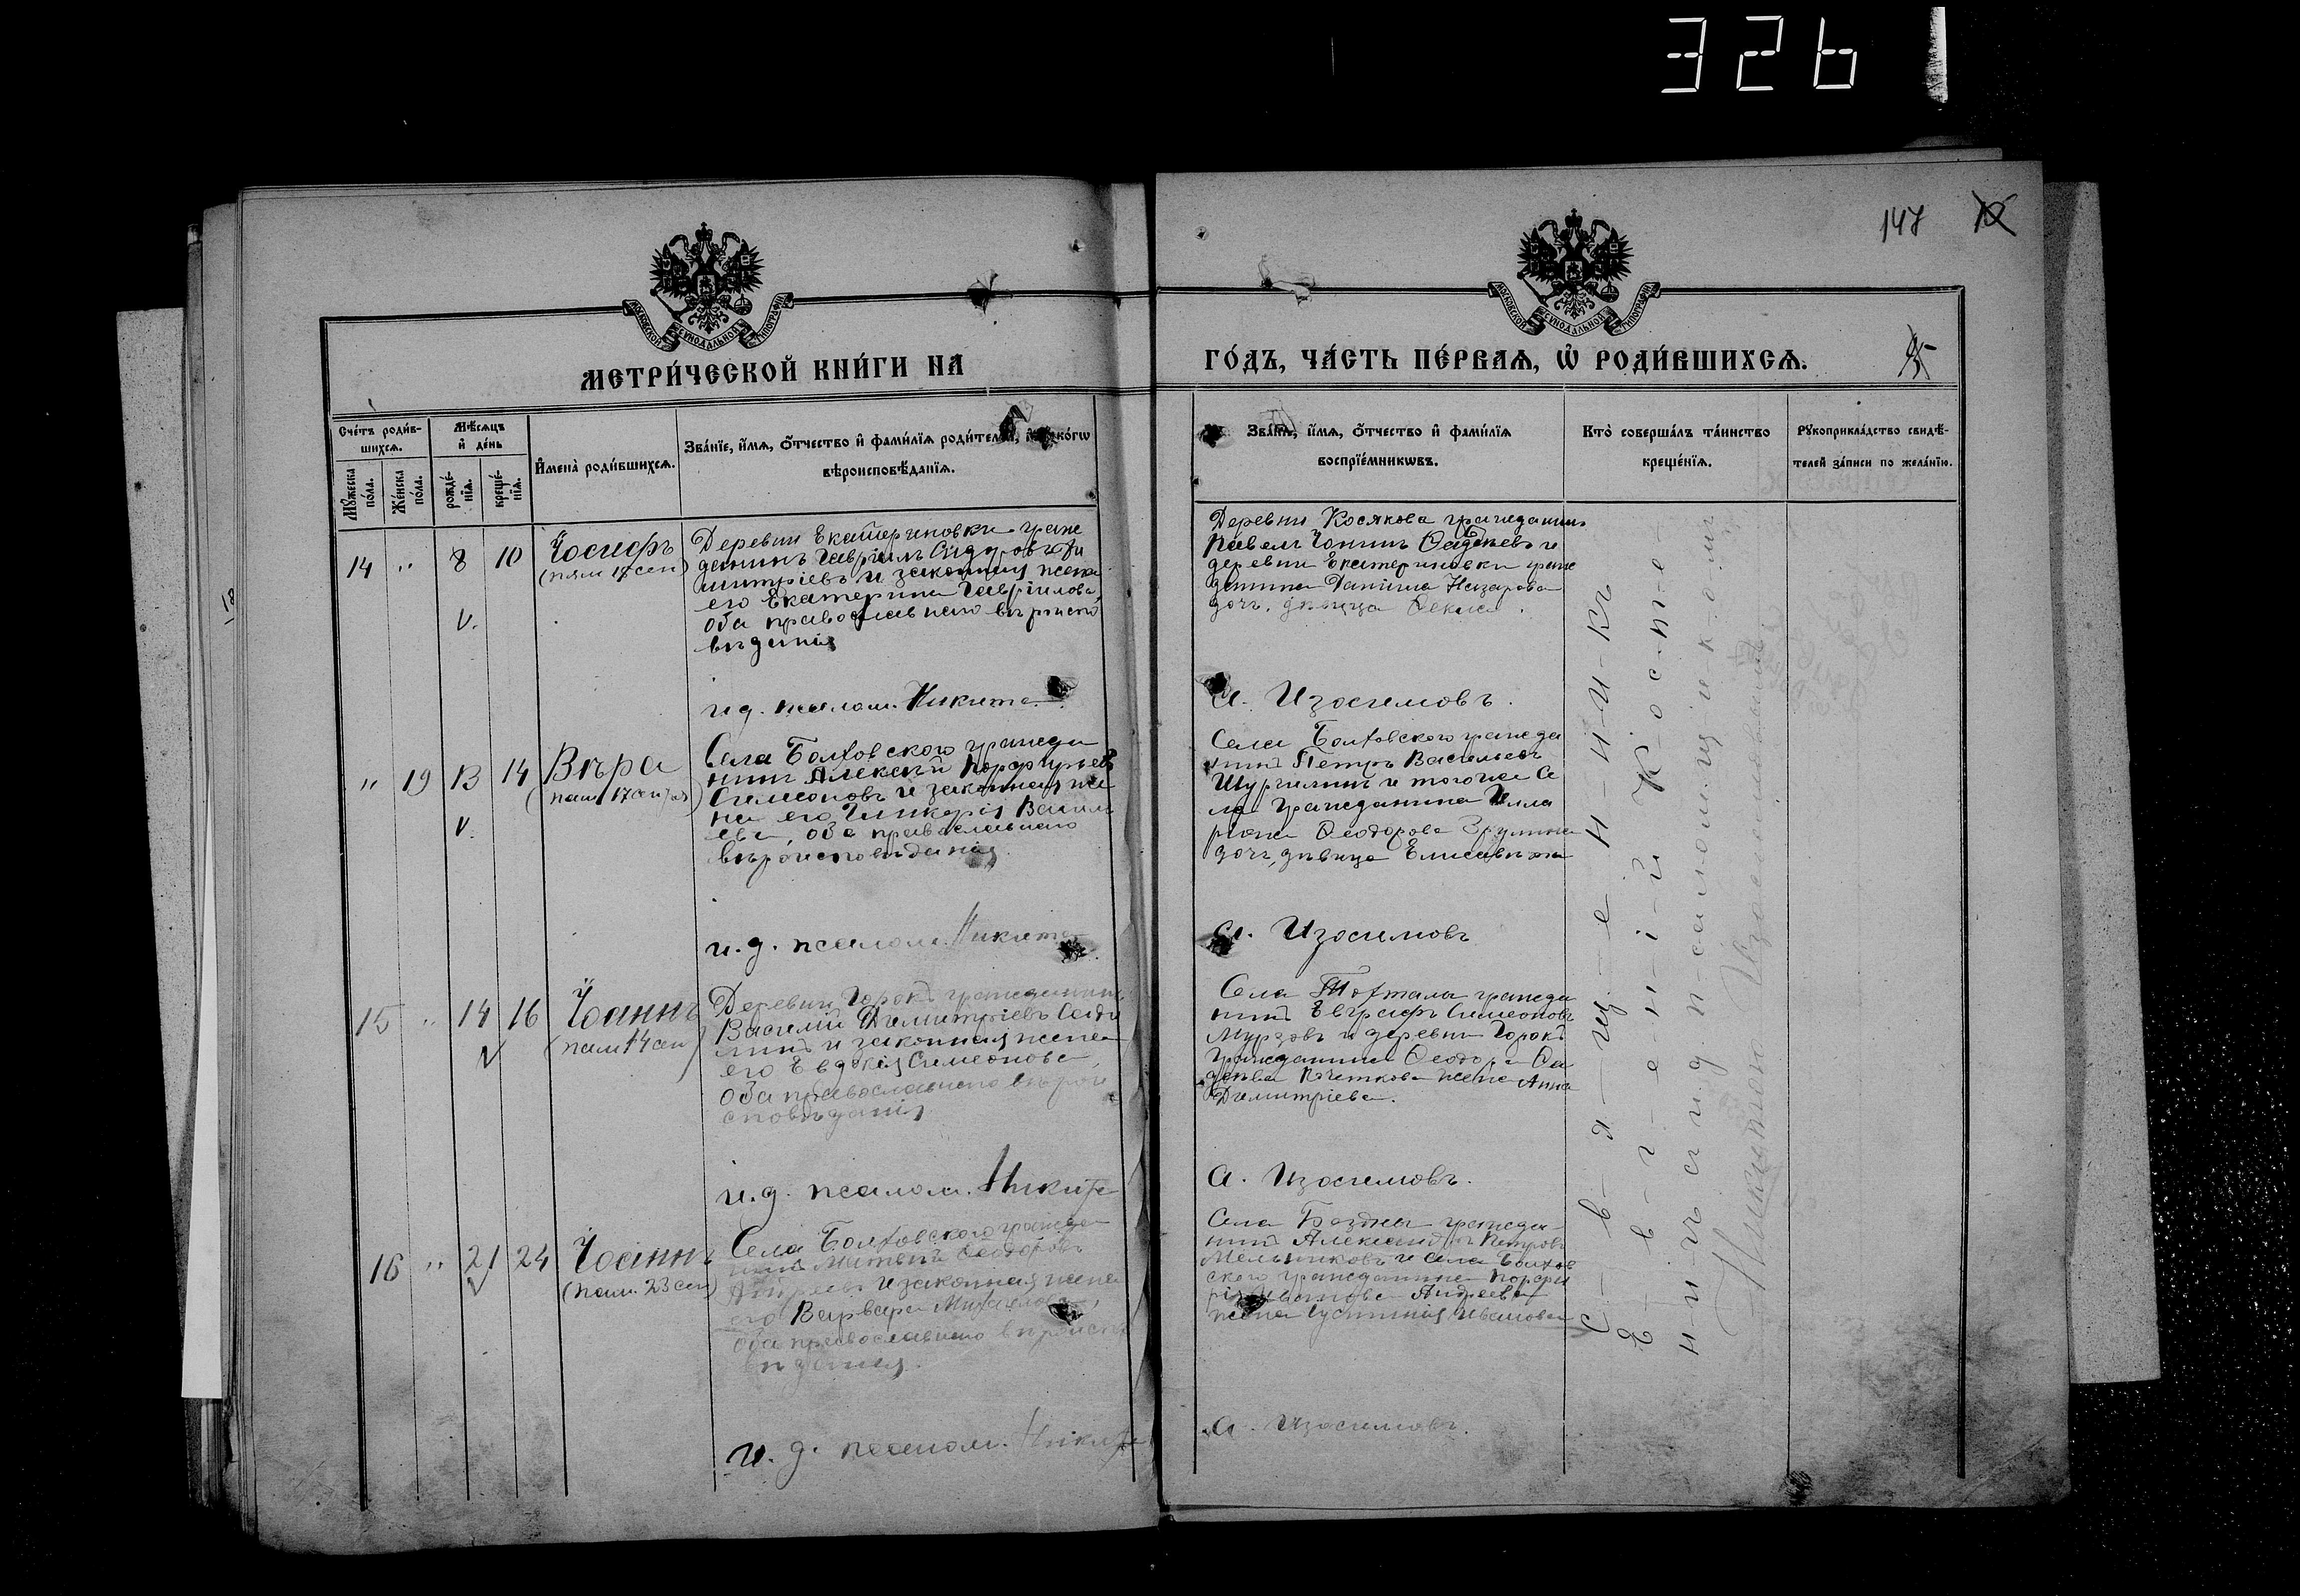 326
147
МЕТРИ́ЧЕСКОЙ КНИ́ГИ НА
ГО́ДЪ, ЧА́СТЬ ПЕ́РВАѦ, Ѡ҆ РОДИ́ВШИХСѦ.
МОСКОВСКОЙ СѴНОДАЛЬНОЙ ТИПОГРАФІИ
МОСКОВСКОЙ СѴНОДАЛЬНОЙ ТИПОГРАФІИ
Сче́тъ роди́в-
шихсѧ.
Мꙋ́жеска по́ла.
Же́нска по́ла.
Мѣ́сѧцъ
и҆ де́нь
рожде́-
нїѧ.
креще́-
нїѧ.
И҆мена̀ роди́вшихсѧ.
Зва́нїе, и҆́мѧ, ѻ҆́тчество и҆ фами́лїѧ роди́телей, и҆ како́гѡ
вѣроисповѣ́данїѧ.
Зва́нїе, и҆́мѧ, ѻ҆́тчество и҆ фами́лїѧ
воспрїе́мникѡвъ.
Кто̀ соверша́лъ та́инство
креще́нїѧ.
Рꙋкоприкла́дство свидѣ́-
телей за́писи по жела́нїю.
14 " 8 10 Іосифъ
Деревни Екатериновки граж
данинъ Гавріилъ Сидоровъ Ди
митріевъ и законная жена
его Екатерина Гавріилова,
оба православнаго вѣроиспо
вѣданія
и.д. псалом. Никита
Деревни Косякова гражданинъ
Павелъ
деревни Екатериновки граж
данина Даніила Назарова
доч. дѣвица Ѳекла.
А. Изосимовъ.
" 19 13 14 Вѣра
Села Болховского гражда
нинъ Алексѣй Порфирьевъ
Симеоновъ и законная же
на его Гликерія Васил
ева, оба православнаго
вѣроисповѣданія
и.д. псалом. Никита
Села Болховского гражда
нинъ Петръ Васильевъ
и того же Се
ла гражданина Илла
ріона Ѳеодорова
дочь, дѣвица Елисавета
А. Изосимовъ
15 " 14 16 Іоаннъ
(пам. 14 сен)
Деревни Горокъ гражданинъ
Василій Димитріевъ
и законная жена
его Евдокія Симеонова,
оба православнаго вѣрои
сповѣданія
и.д. псалом. Никита
Села гражда
нинъ Евграфъ Симеоновъ
Мурзовъ и деревни Горокъ
гражданина Ѳеодора Ѳа
дѣева Кочеткова жена Анна
Димитріева.
А. Изосимовъ.
16 " 21 24 Іоаннъ
(пам. 23 сен)
Села Болховского гражда
нинъ Ѳеодоровъ
Андреевъ и законная жена
его Варвара Михаилова,
оба православнаго вѣроиспо
вѣданія.
и.д. псалом. Никита
Села Бездны гражда-
нинъ Александръ Петровъ
Мельниковъ и села Болхов
ского гражданина Порфи
рія Иванова Андреева
жена Іустинія Иванова
А. Изосимовъ.
С-в-я-щ-е-н-н-и-къ
Е-в-г-е-н-і-й К-о-с-т-е-
н-и-чъ и и.д. п-сал-ом-щ-и-к-ом-ъ
Никитою Изосимовымъ